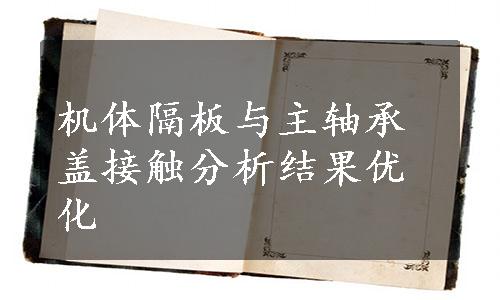 机体隔板与主轴承
盖接触分析结果优
化